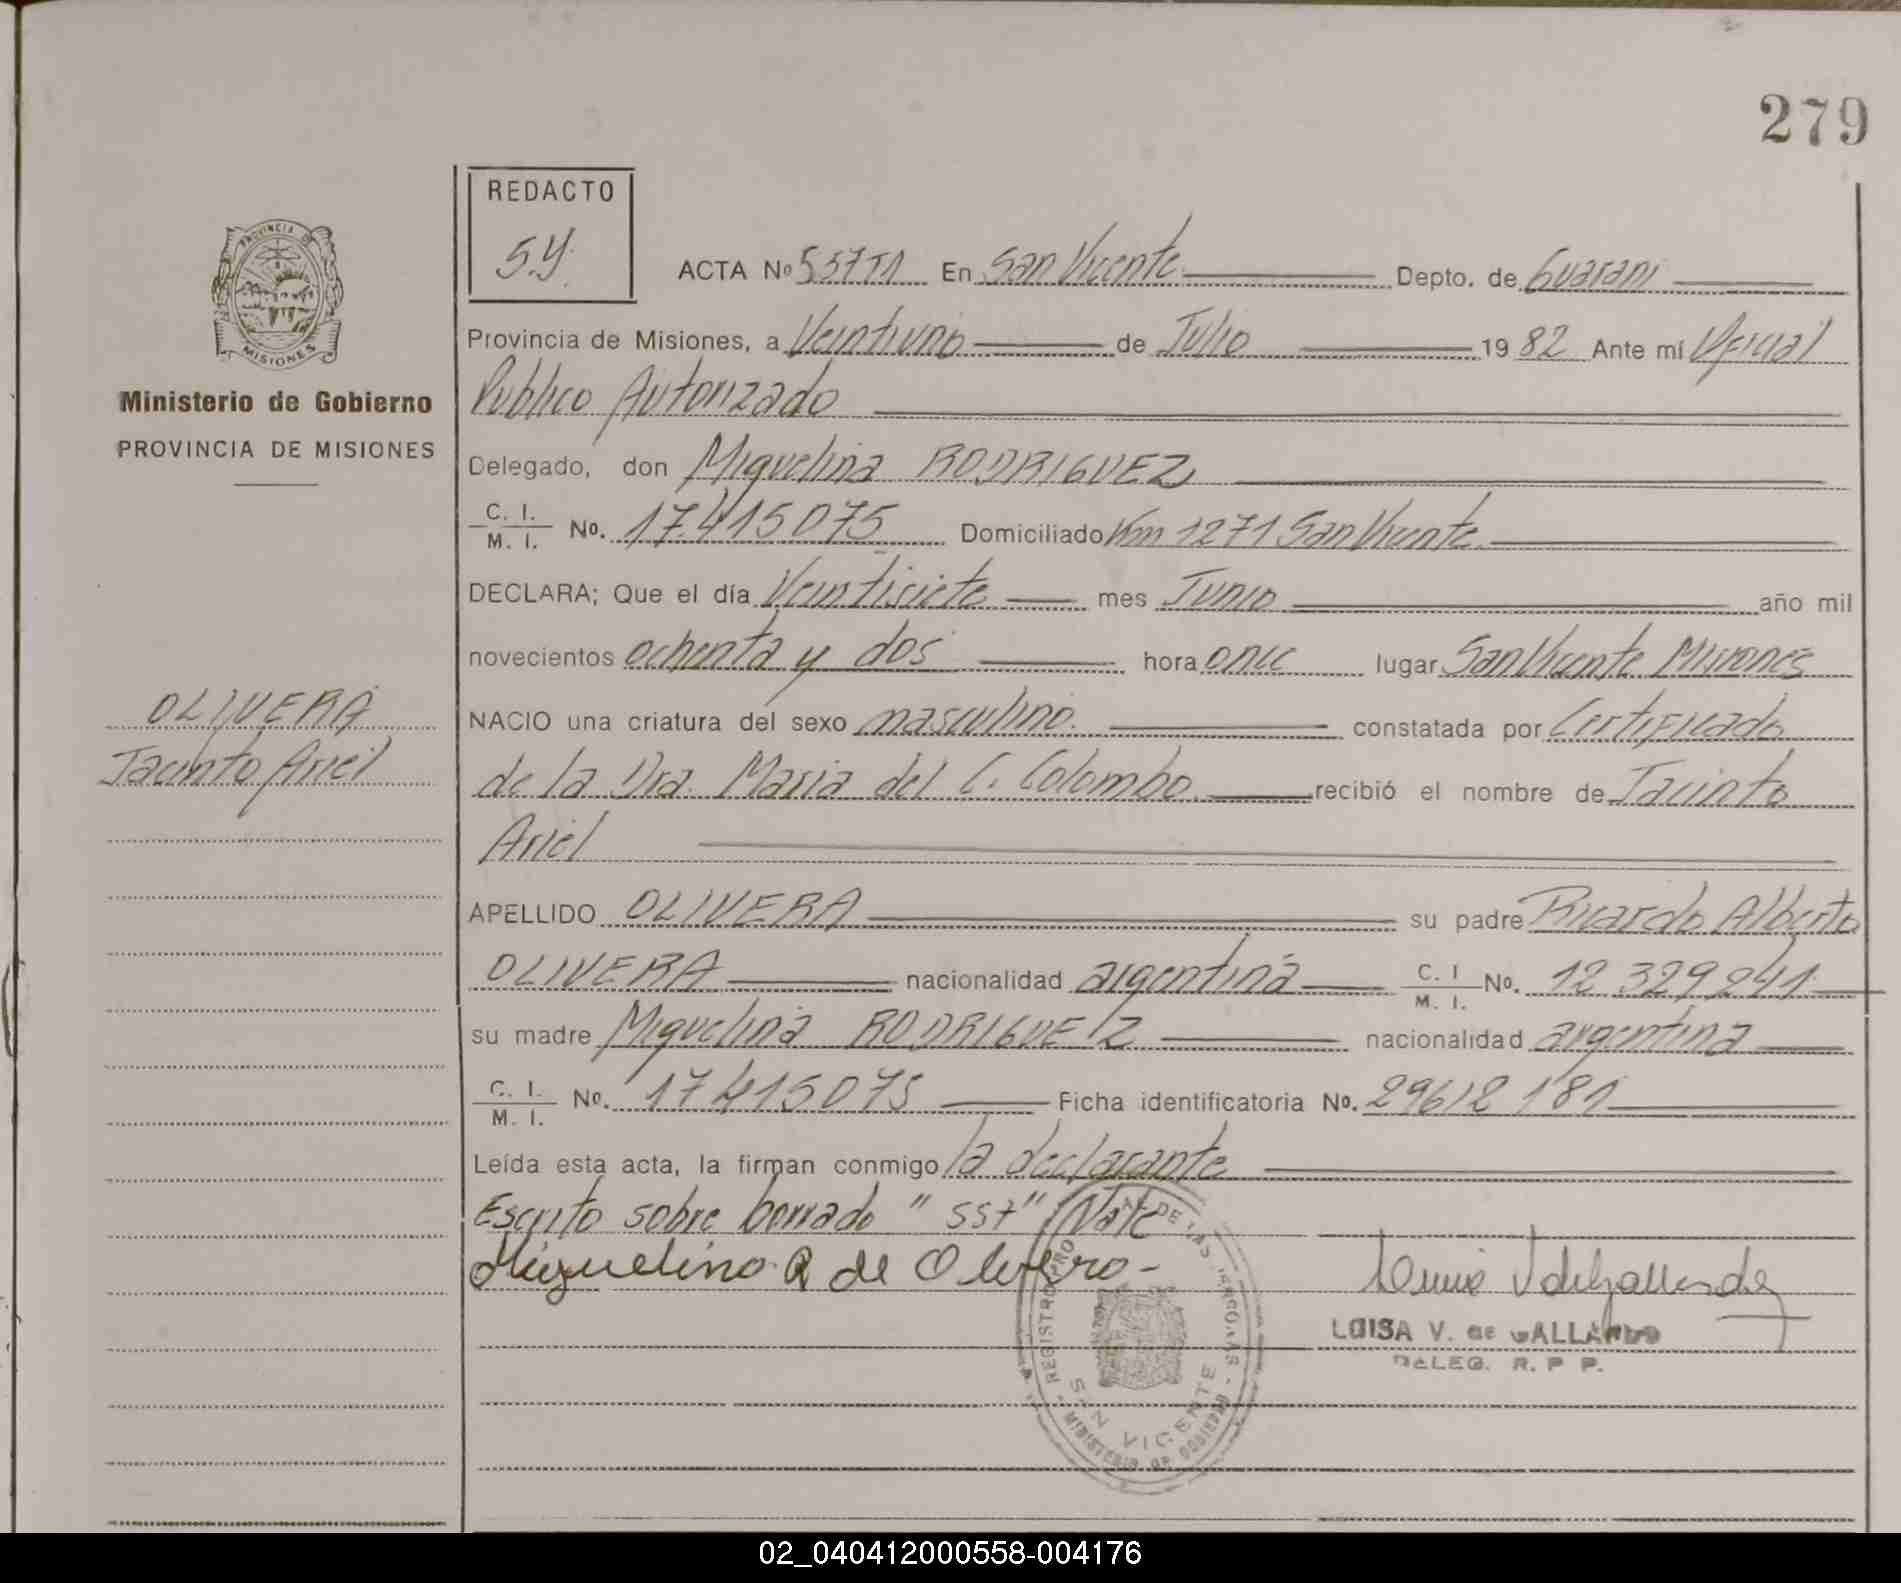 279
REDACTO
S.Y.
ACTA Nº 557T1 En San Vicente Depto. de Guarani
Provincia de Misiones, a Veintiuno de Julio 1982 Ante mí Oficial
Publico Autorizado
Delegado, don Miguelina RODRIGUEZ
C. I.
M. I. No. 17.415075 Domiciliado Km 1271 San Vicente
DECLARA; Que el día Veintisiete mes Junio año mil
novecientos ochenta y dos hora once lugar San Vicente Misiones
NACIO una criatura del sexo masculino. constatada por Certificado
de la Dra. Maria del C. Colombo recibió el nombre de Jacinto
Ariel
APELLIDO OLIVERA su padre Ricardo Alberto
OLIVERA nacionalidad argentina C. I. M. I. No. 12 329 241
su madre Miguelina RODRIGUEZ nacionalidad argentina
C. I.
M. I. No. 17 415075 Ficha identificatoria No. 29612 181
Leída esta acta, la firman conmigo la declarante
Escrito sobre borrado "557" Vale
Miguelina R de Olivera -
LUISA V. de GALLARDO
DELEG. R. P P.
PROVINCIA DE
MISIONES
Ministerio de Gobierno
PROVINCIA DE MISIONES
OLIVERA
Jacinto Ariel
REGISTRO PRO DE LAS PERSONAS
SAN VICENTE
MINISTERIO DE GOBIERNO
02_040412000558-004176